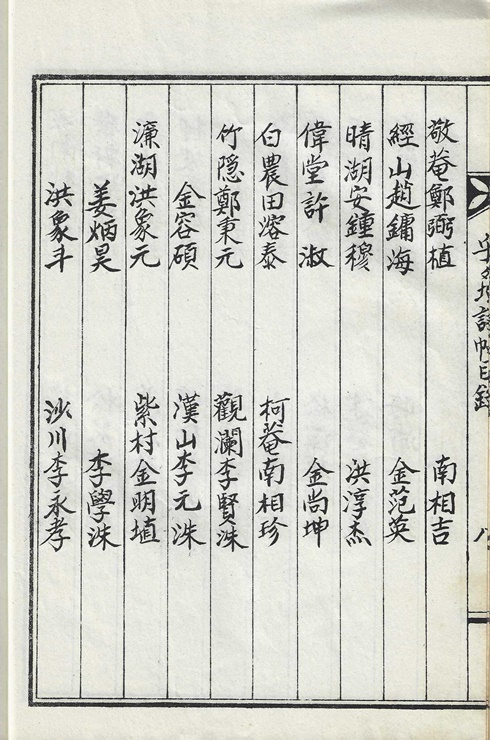 詩帖目錄
敬菴鄭弼植 南相吉
經山趙鏞海 金范英
晴湖安鍾穆 洪淳杰
偉堂許淑 金尙坤
白農田溶泰 柯菴南相珍
竹隱鄭秉元 觀瀾李賢洙
金容碩 漢山李元洙
濂湖洪象元 紫村金明埴
姜炳昊 李學洙
洪象斗 沙川李永孝